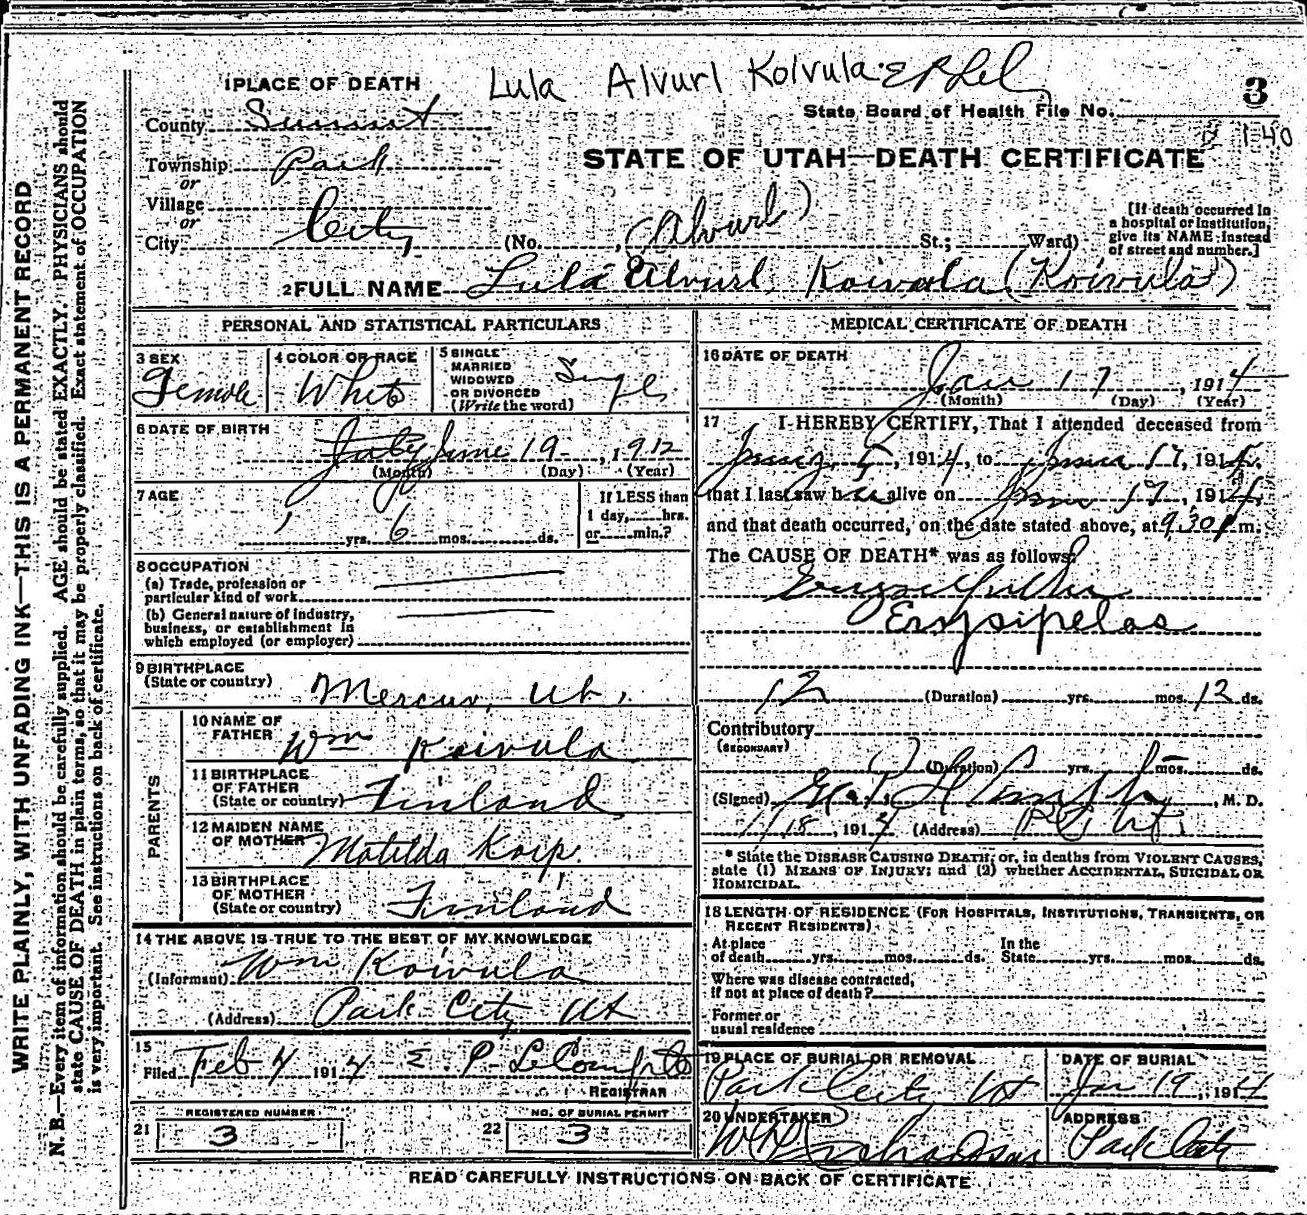 Lula Alvurl Koivula
3
1 PLACE OF DEATH
State Board of Health File No.
140
County Summit
Township Park
or
Village
or
City City
STATE OF UTAH—DEATH CERTIFICATE
(No. (Alvurl) St.; Ward)
[If death occurred in
a hospital or institution,
give its NAME instead
of street and number.]
2 FULL NAME Lula Alvurl Koivula (Koivula)
WRITE PLAINLY, WITH UNFADING INK—THIS IS A PERMANENT RECORD
N. B.—Every item of information should be carefully supplied. AGE should be stated EXACTLY. PHYSICIANS should
state CAUSE OF DEATH in plain terms, so that it may be properly classified. Exact statement of OCCUPATION
is very important. See instructions on back of certificate.
PERSONAL AND STATISTICAL PARTICULARS
3 SEX
Female
4 COLOR OR RACE
White
5 SINGLE
MARRIED
WIDOWED
OR DIVORCED
(Write the word)
Single
6 DATE OF BIRTH
June 19, 1912
(Month) (Day) (Year)
7 AGE
1 yrs. 6 mos. ds.
If LESS than
1 day, hrs.
or min.?
8 OCCUPATION
(a) Trade, profession or
particular kind of work
(b) General nature of Industry,
business, or establishment in
which employed (or employer)
9 BIRTHPLACE
(State or country)
Mercur, Ut.
PARENTS
10 NAME OF
FATHER
Wm Koivula
11 BIRTHPLACE
OF FATHER
(State or country)
Finland
12 MAIDEN NAME
OF MOTHER
Matilda Koip.
13 BIRTHPLACE
OF MOTHER
(State or country)
Finland
14 THE ABOVE IS TRUE TO THE BEST OF MY KNOWLEDGE
(Informant) Wm Koivula
(Address) Park City Ut
15
Filed Feb 4 1914 E. P. LeCompte
REGISTRAR
REGISTERED NUMBER
21 3
NO. OF BURIAL PERMIT
22 3
MEDICAL CERTIFICATE OF DEATH
16 DATE OF DEATH
Jan 17, 1914
(Month) (Day) (Year)
17 I HEREBY CERTIFY, That I attended deceased from
5, 1914, to 17, 1914,
that I last saw her alive on 17, 1914,
and that death occurred, on the date stated above, at 9:30 p m.
The CAUSE OF DEATH* was as follows:
Erysipelas
12 (Duration) yrs. mos. 12 ds.
Contributory
(SECONDARY)
(Duration) yrs. mos. ds.
(Signed) M. D.
1/18, 1914 (Address) P C Ut.
* State the DISEASE CAUSING DEATH; or, in deaths from VIOLENT CAUSES,
state (1) MEANS OF INJURY; and (2) whether ACCIDENTAL, SUICIDAL OR
HOMICIDAL.
18 LENGTH OF RESIDENCE (FOR HOSPITALS, INSTITUTIONS, TRANSIENTS, OR
RECENT RESIDENTS)
At place
of death yrs. mos. ds.
In the
State yrs. mos. ds.
Where was disease contracted,
if not at place of death?
Former or
usual residence
19 PLACE OF BURIAL OR REMOVAL
Park City Ut
DATE OF BURIAL
Jan 19, 1914
20 UNDERTAKER
W Richardson
ADDRESS
Park City
READ CAREFULLY INSTRUCTIONS ON BACK OF CERTIFICATE